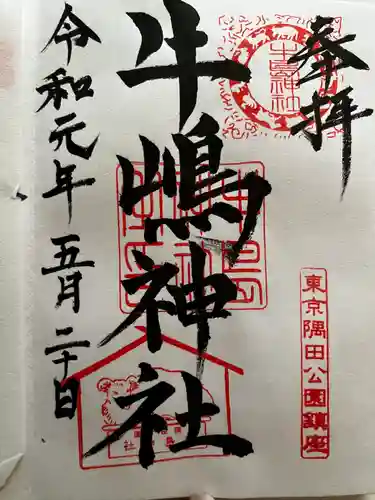 奉拝
牛嶋神社
牛嶋神社
東京隅田公園鎮座
令和元年五月二十日